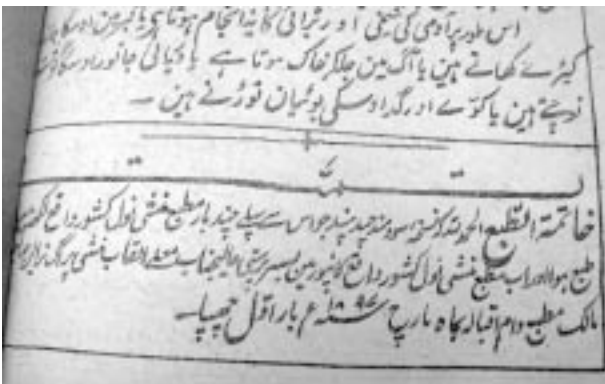 اس طور پر آدمی کی شیخی اور بڑائی کا یہ انجام ہوتا ہے یا قبر مین اوسکا
کیڑے کھاتے ہین یا آگ مین جلکر خاک ہوتا ہے یا دریائی جانور اوسکا گوشت
نوچتے ہین یا کوّے اور گد اوسکی بوٹیان توڑتے ہین ۔
تمّت
خاتمۃ الطبع الحمد للہ کہ نسخہ سودمند چند پند جو اس سے پہلے چند بار مطبع منشی نول کشور واقع لکھنؤ مین
طبع ہوا اور اب مطبع منشی نول کشور واقع کانپور مین بسرپرستی عالیجناب معلے القاب منشی پراگ نراین
مالک مطبع دام اقبالہ بماہ مارچ ۱۸۹۶ ء بار اوّل چھپا ۔